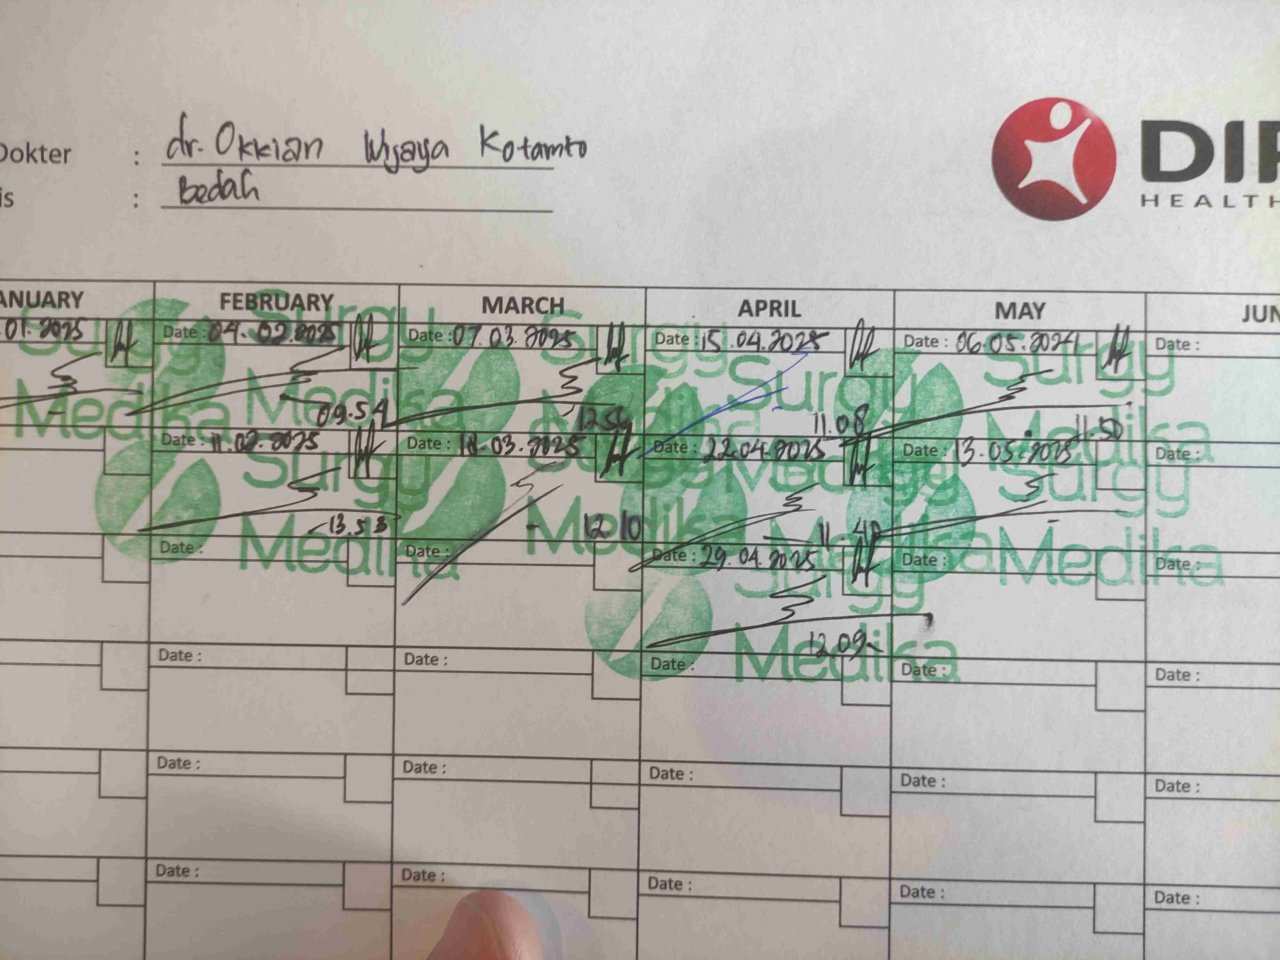 Dokter : dr. Okkian Wijaya Kotamto
is : Bedah
DIP
HEALTH
ANUARY FEBRUARY MARCH APRIL MAY JUN
.01.2025 Date : 04.02.2025 Date : 07.03.2025 Date : 15.04.2025 Date : 06.05.2024 Date :
Surgy Medika
09.54 12.54 11.08 11.50
Date : 11.02.2025 Date : 18.03.2025 Date : 22.04.2025 Date : 13.05.2025 Date :
Surgy Medika
13.53 12.10 11.40
Date : Date : Date : 29.04.2025 Date : Date :
Surgy Medika
12.09
Date : Date : Date : Date : Date :
Date : Date : Date : Date : Date :
Date : Date : Date : Date : Date :